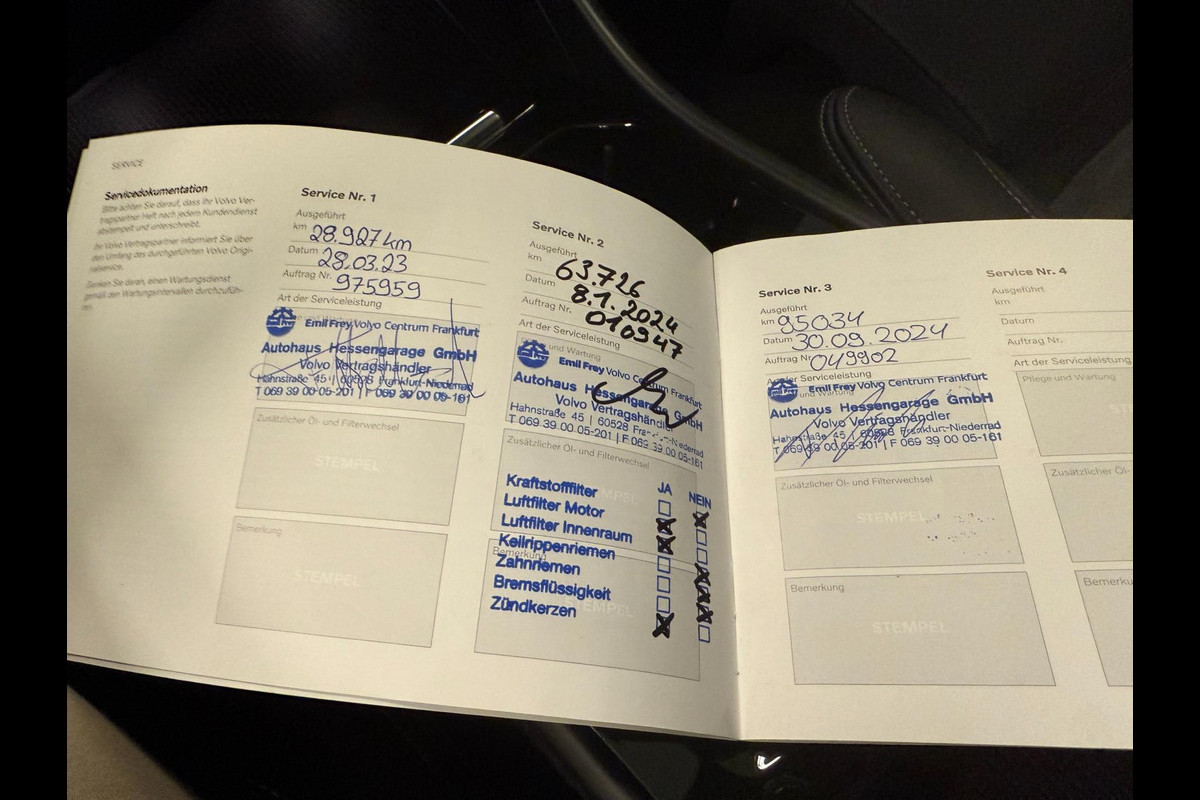 SERVICE
Servicedokumentation
Bitte achten Sie darauf, dass Ihr Volvo Ver-
tragspartner Heft nach jedem Kundendienst
abstempelt und unterschreibt.
Ihr Volvo Vertragspartner informiert Sie über
den Umfang des durchgeführten Volvo Origi-
nalservice.
Denken Sie daran, einen Wartungsdienst
gemäß den Wartungsintervallen durchzufüh-
Service Nr. 1
Ausgeführt
km 28.927 km
Datum 28.03.23
Auftrag Nr. 975959
Art der Serviceleistung
Emil Frey Volvo Centrum Frankfurt
Autohaus Hessengarage GmbH
Volvo Vertragshändler
Hahnstraße 45 | 60528 Frankfurt-Niederrad
T 069 39 00 05-201 | F 069 39 00 05-161
Zusätzlicher Öl- und Filterwechsel
STEMPEL
Bemerkung
STEMPEL
Service Nr. 2
Ausgeführt
km 63.726
Datum 8.1.2024
Auftrag Nr. 010947
Art der Serviceleistung
und Wartung
Emil Frey Volvo Centrum Frankfurt
Autohaus Hessengarage GmbH
Volvo Vertragshändler
Hahnstraße 45 | 60528 Niederrad
T 069 39 00 05-201 | F 069 39 00 05-161
Zusätzlicher Öl- und Filterwechsel
JA NEIN
Kraftstofffilter
Luftfilter Motor
Luftfilter Innenraum
Keilrippenriemen
Bemerkung
Zahnriemen
Bremsflüssigkeit
Zündkerzen
STEMPEL
Service Nr. 3
Ausgeführt
km 95034
Datum 30.09.2024
Auftrag Nr. 049902
Art der Serviceleistung
und Wartung
Emil Frey Volvo Centrum Frankfurt
Autohaus Hessengarage GmbH
Volvo Vertragshändler
Hahnstraße 45 | 60528 Frankfurt-Niederrad
T 069 39 00 05-201 | F 069 39 00 05-161
Zusätzlicher Öl- und Filterwechsel
STEMPEL
Bemerkung
STEMPEL
Service Nr. 4
Ausgeführt
km
Datum
Auftrag Nr.
Art der Serviceleistung
Pflege und Wartung
ST
Zusätzlicher Öl-
Bemerku